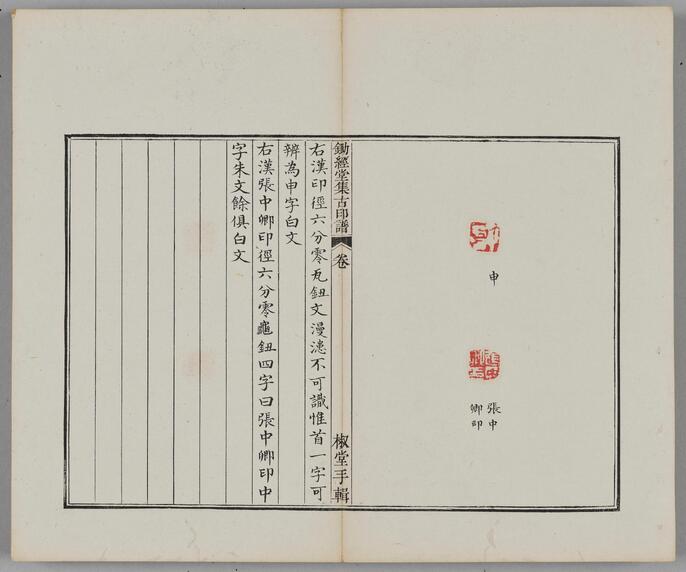 申
張中
卿印
鋤經堂集古印譜
卷
椒堂手輯
右漢印徑六分零瓦鈕文漫漶不可識惟首一字可
辨為申字白文
右漢張中卿印徑六分零龜鈕四字曰張中卿印中
字朱文餘俱白文